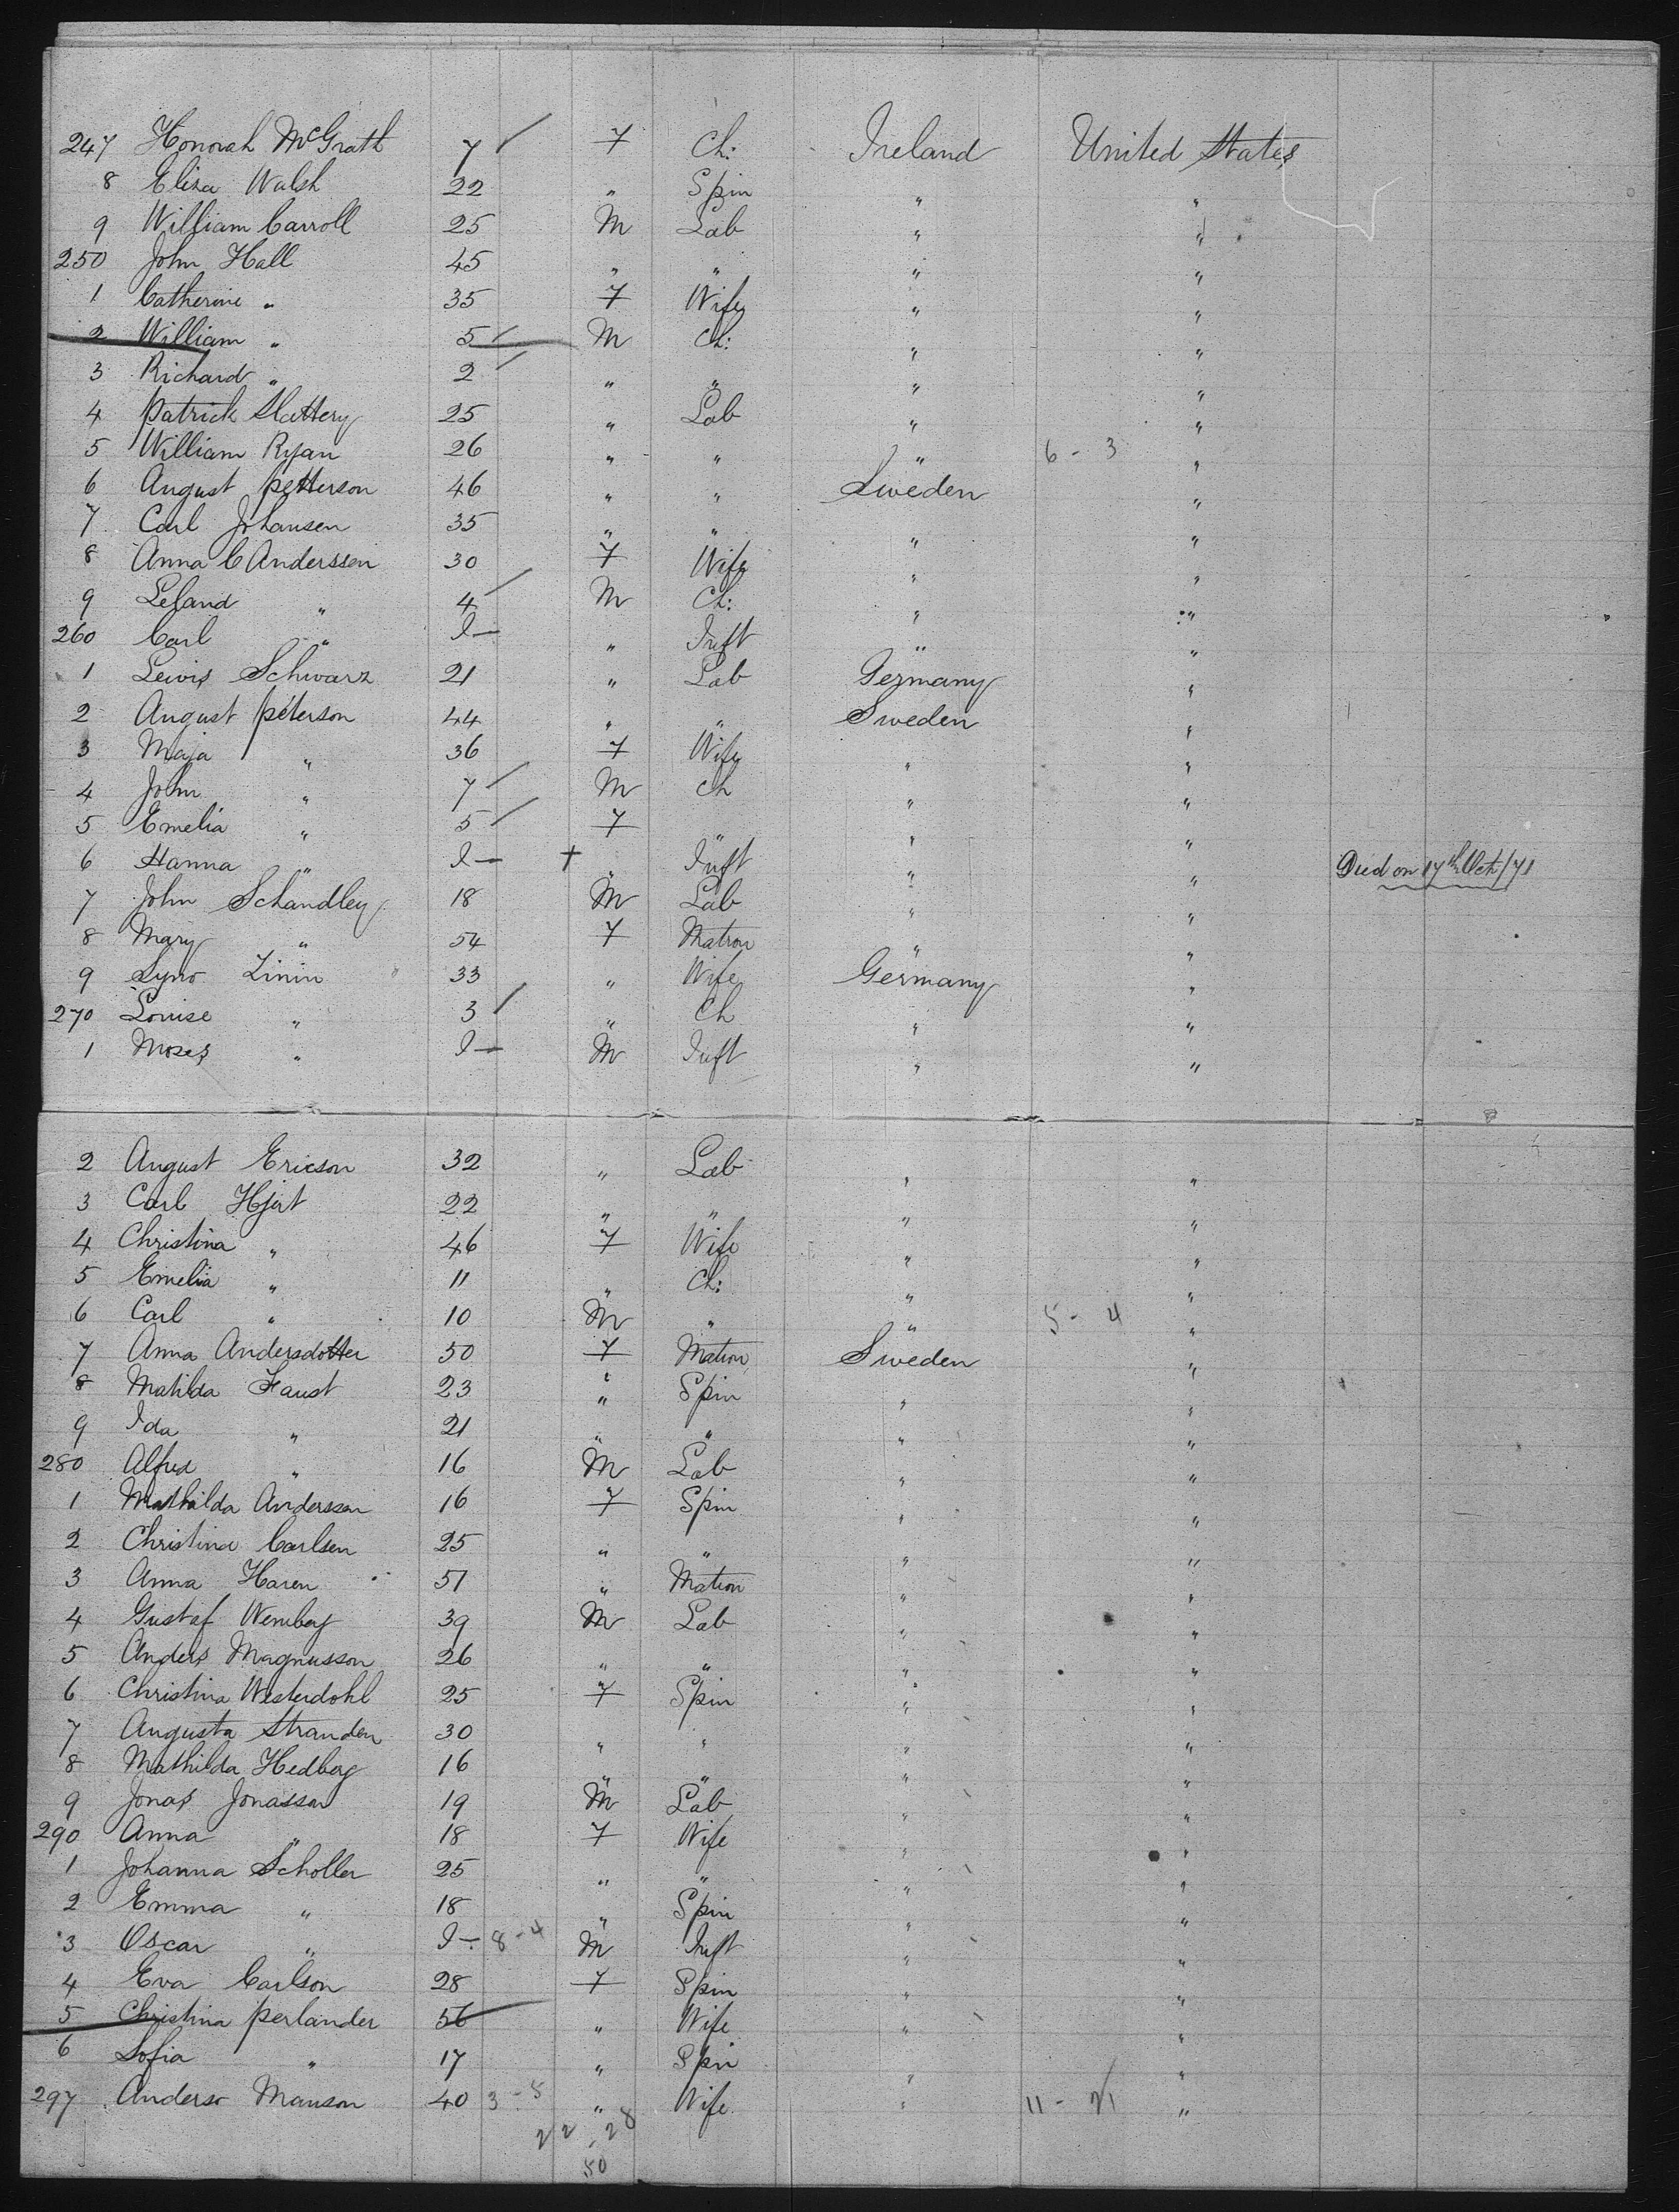 247 Honorah McGrath 7 F Ch: Ireland United States
8 Eliza Walsh 22 " Spin " "
9 William Carroll 25 M Lab " "
250 John Hall 45 " " " "
1 Catherine " 35 F Wife " "
2 William " 5 M Ch: " "
3 Richard " 2 " " " "
4 Patrick Slattery 25 " Lab " "
5 William Ryan 26 " " " 6 - 3 "
6 August Petterson 46 " " Sweden "
7 Carl Johansen 35 " " " "
8 Anna C Anderssen 30 F Wife " "
9 Leland " 4 M Ch: " "
260 Carl " I— " Inft " "
1 Lewis Schwarz 21 " Lab Germany "
2 August Peterson 44 " " Sweden "
3 Maja " 36 F Wife " "
4 John " 7 M Ch " "
5 Emelia " 5 F " " "
6 Hanna " I— † " Inft " " Died on 17th Oct/71
7 John Schandley 18 M Lab " "
8 Mary " 54 F Matron " "
9 Zinin 33 " Wife Germany "
270 Louise " 3 " Ch " "
1 Moses " I— M Inft " "
2 August Ericson 32 " Lab " "
3 Carl Hjert 22 " " " "
4 Christina " 46 F Wife " "
5 Emelia " 11 " Ch: " "
6 Carl " 10 M " " 5 - 4 "
7 Anna Andersdotter 50 F Matron Sweden "
8 Matilda Faust 23 " Spin " "
9 Ida " 21 " " " "
280 Alfred " 16 M Lab " "
1 Mathilda Anderssen 16 F Spin " "
2 Christina Carlsen 25 " " " "
3 Anna Haren 51 " Matron " "
4 Gustaf Wernberg 39 M Lab " "
5 Anders Magnusson 26 " " " "
6 Christina Westerdohl 25 F Spin " "
7 Augusta Stranden 30 " " " "
8 Mathilda Hedberg 16 " " " "
9 Jonas Jonasson 19 M Lab " "
290 Anna " 18 F Wife " "
1 Johanna Scholler 25 " " " "
2 Emma " 18 " Spin " "
3 Oscar " I— 8 - 4 M Inft " "
4 Eva Carlson 28 F Spin " "
5 Christina Perlander 56 " Wife " "
6 Sofia " 17 " Spin " "
297 Anders Manson 40 3 - 5 " Wife " 11 - 21 "
22 - 28
50